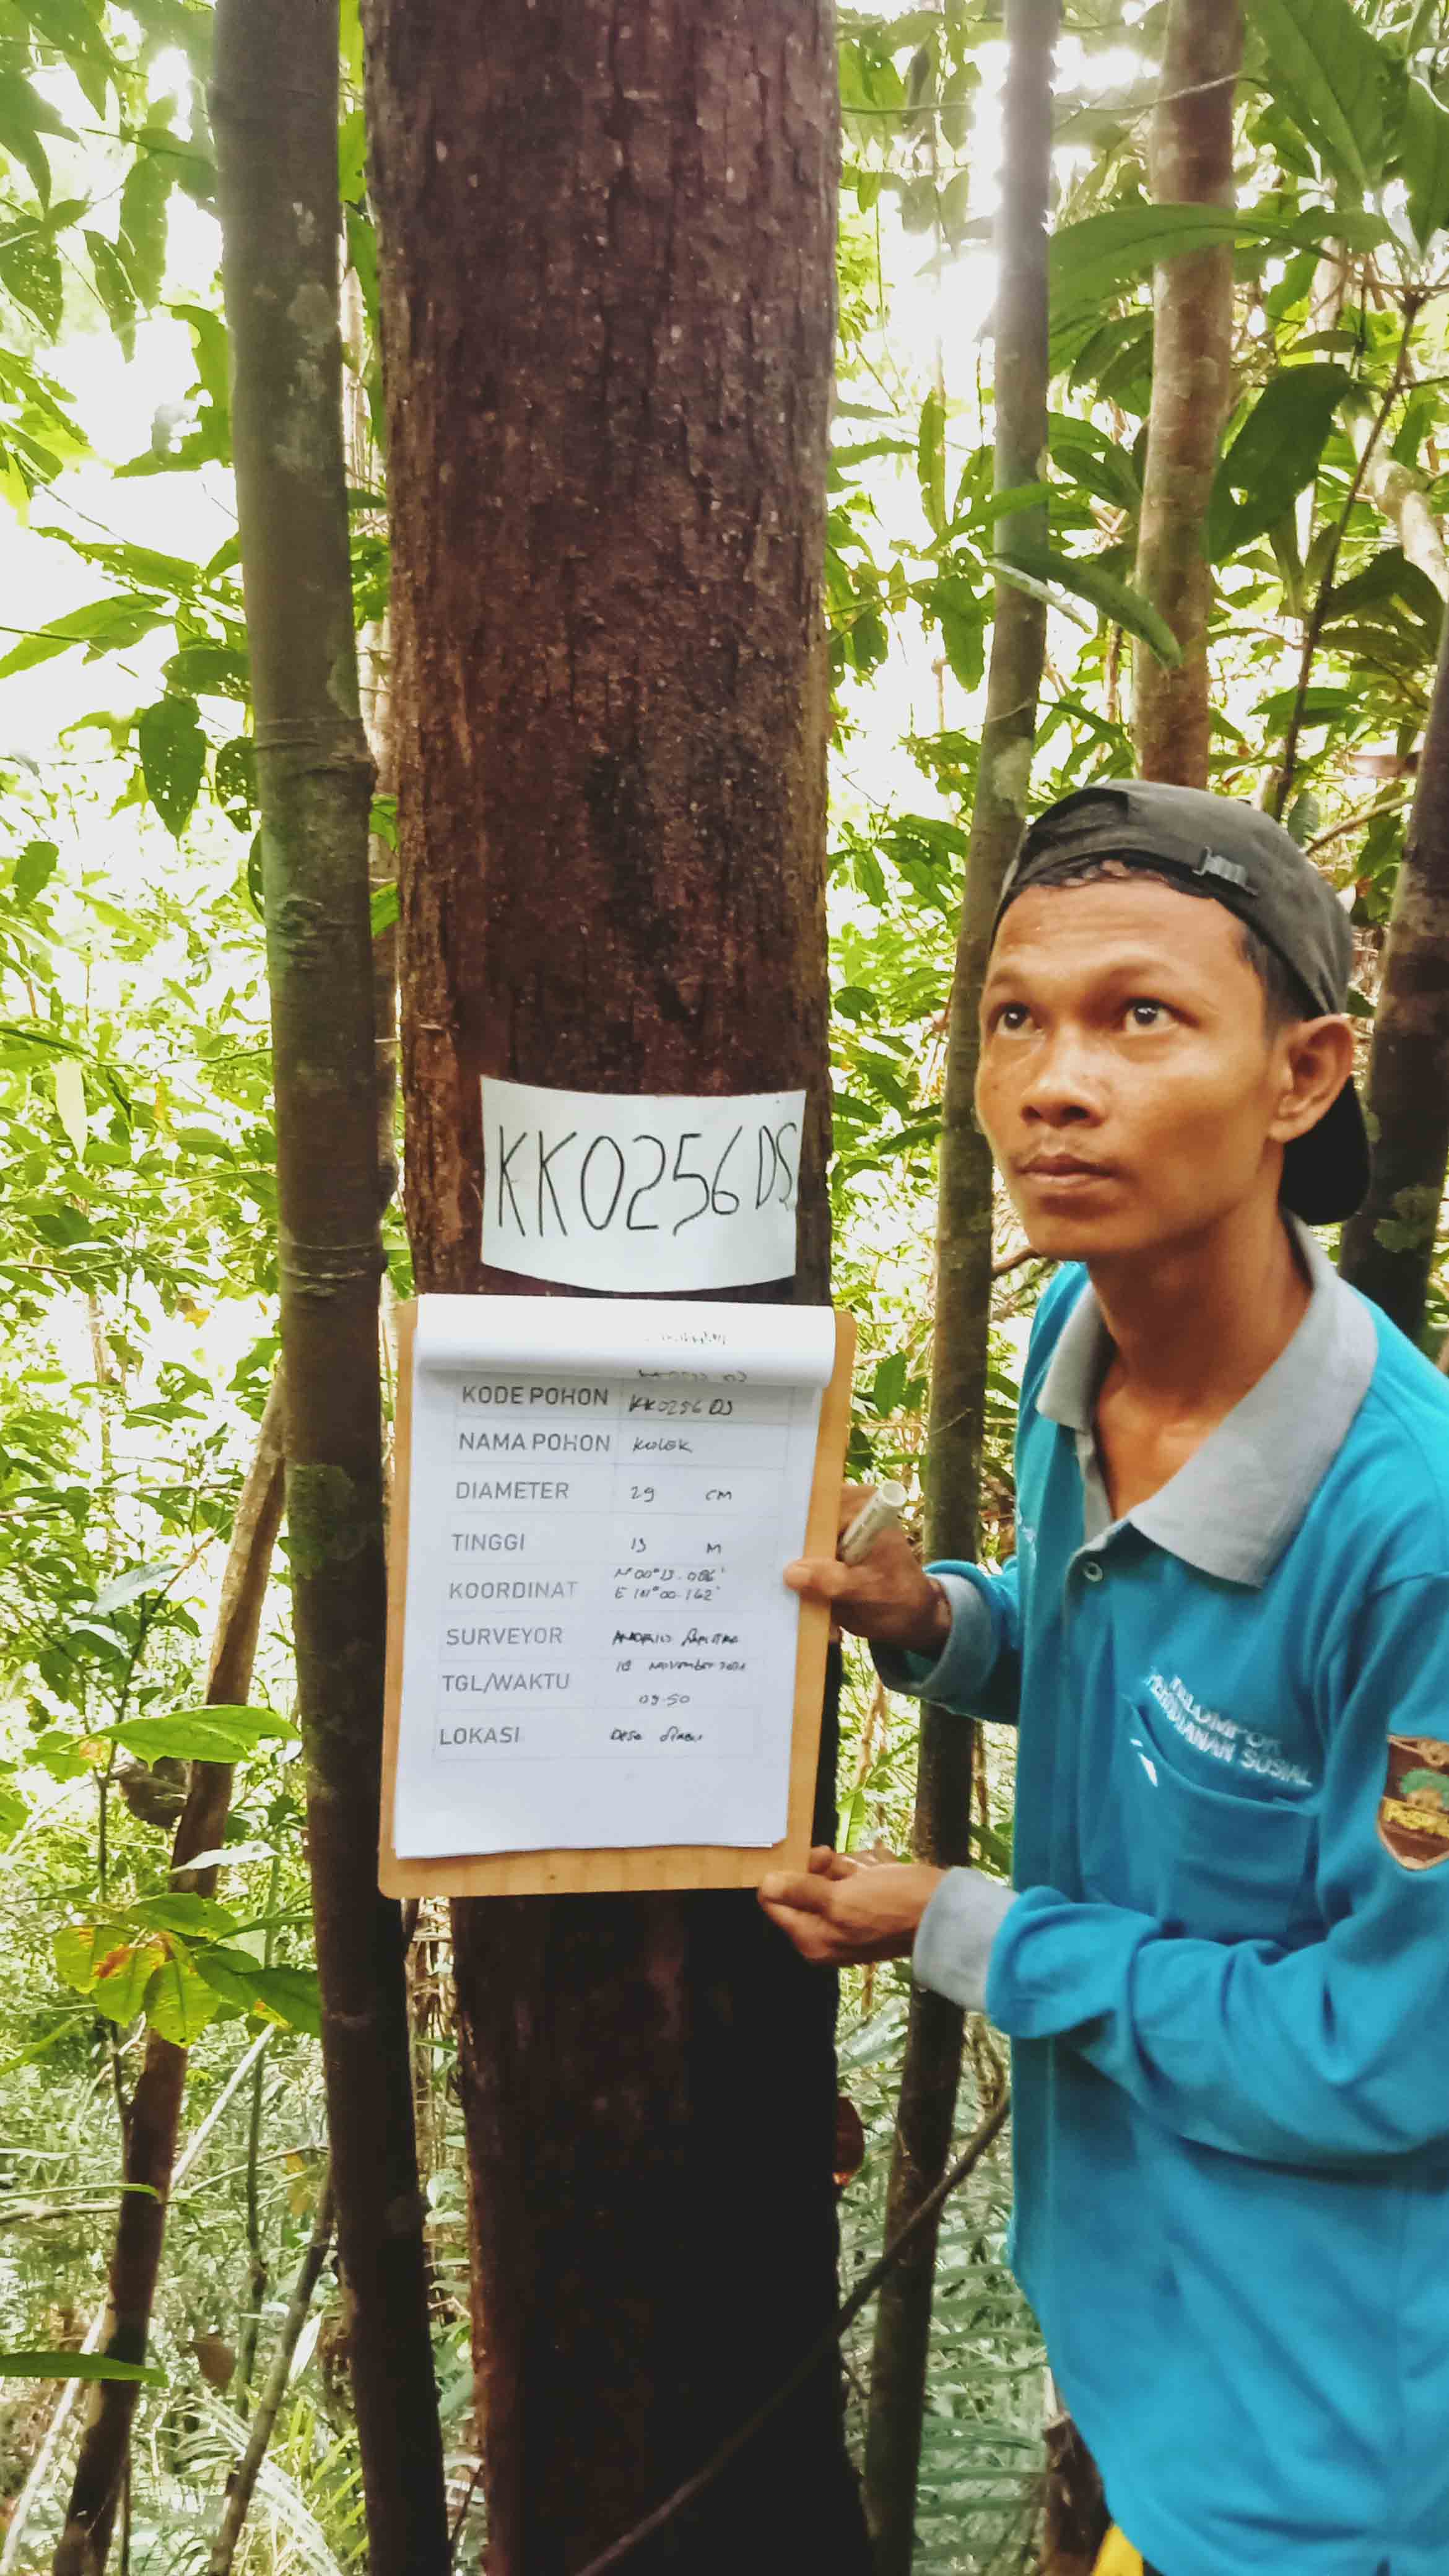 KK0256 DS
KODE POHON KK0256 DS
NAMA POHON KOLEK
DIAMETER 29 CM
TINGGI 15 M
KOORDINAT N 00° 13.086'
E 101° 00.162'
SURVEYOR
TGL/WAKTU 18 November
09.50
LOKASI Desa
KELOMPOK
PERHUTANAN SOSIAL